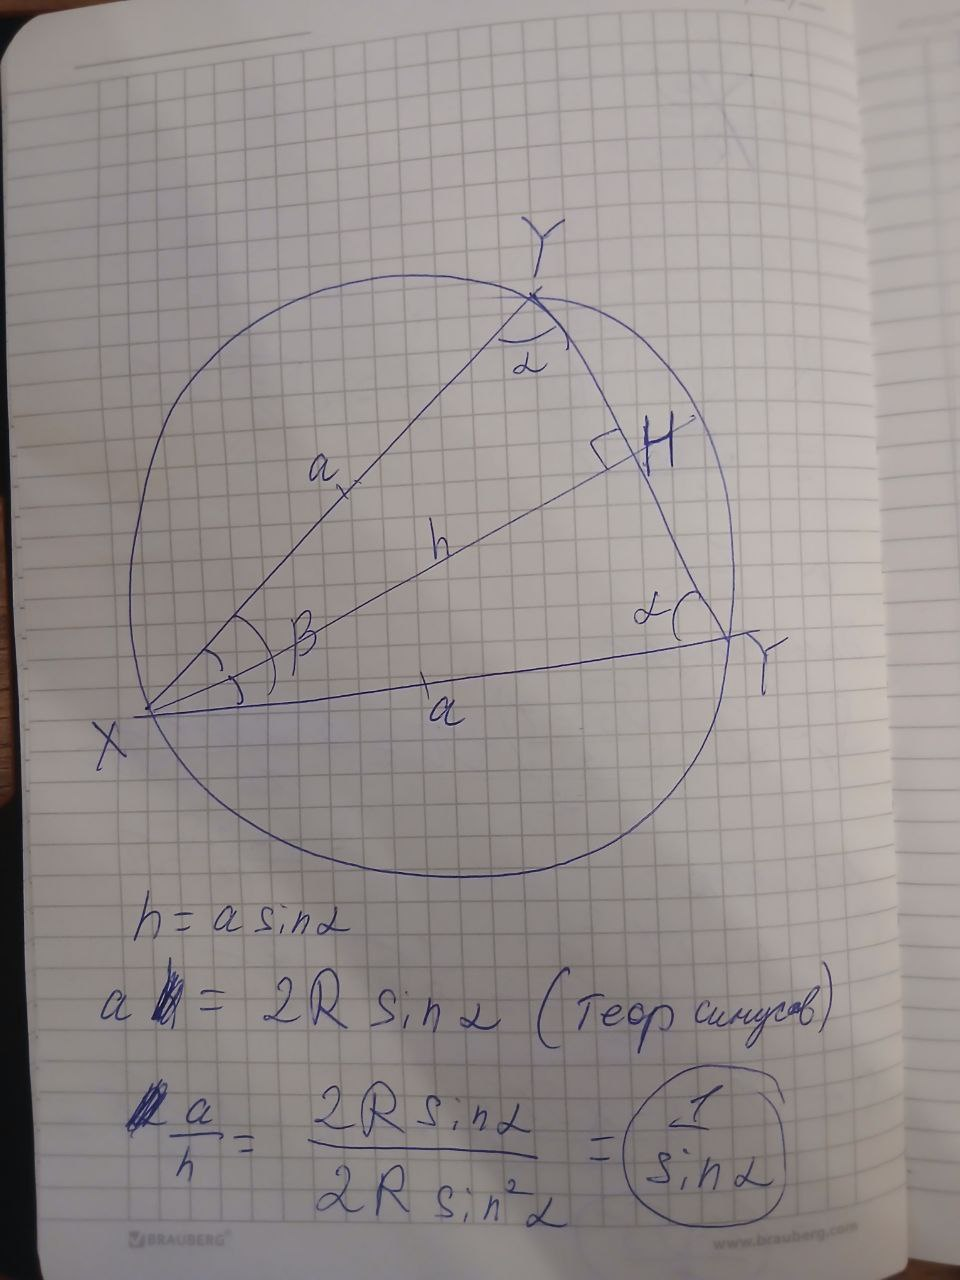 Y
α
a
H
h
β
α
Y
a
X
h = a sin α
a = 2R sin α (теор синусов)
a/h = 2R sin α / 2R sin² α = 1 / sin α
BRAUBERG® www.brauberg.com